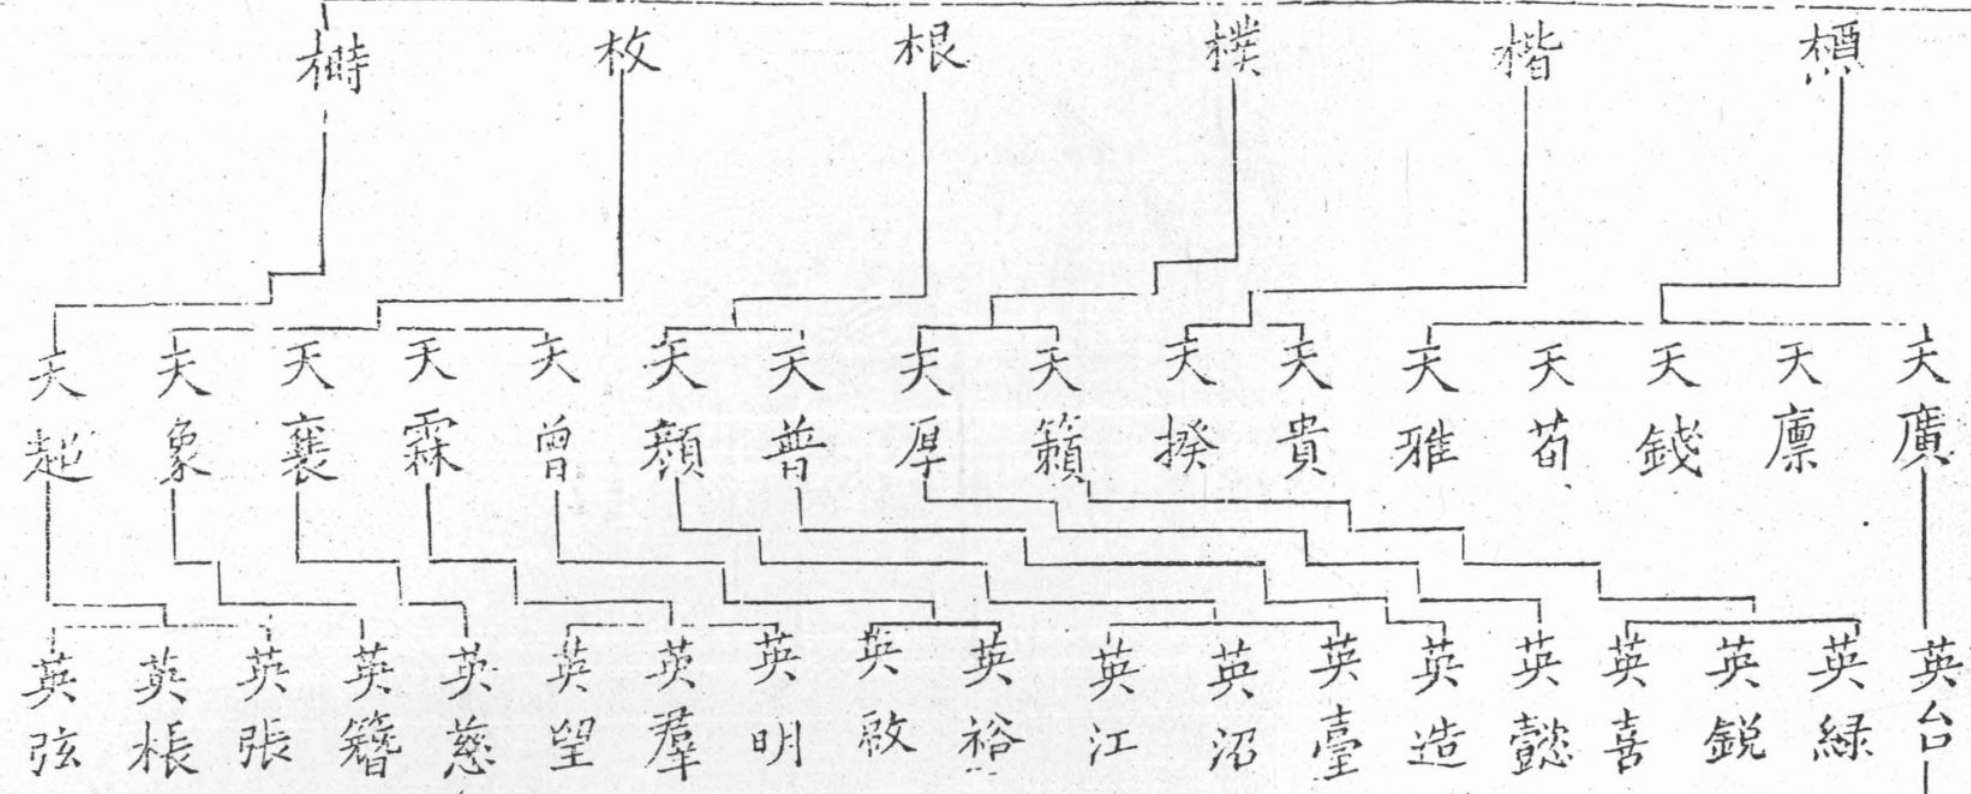 樻 楷 樸 根 枚 榯
天廣 天廪 天錢 天荀 天雅 天貴 天揆 天籟 天厚 天普 天顏 天曾 天霖 天襄 天象 天超
英台 英綠 英銳 英喜 英懿 英造 英臺 英沼 英江 英裕 英啟 英明 英羣 英望 英慈 英簪 英張 英棖 英弦